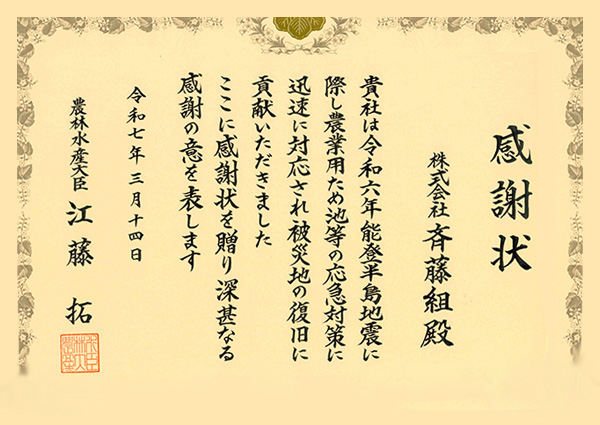 感謝状
株式会社 斉藤組殿
貴社は令和六年能登半島地震に
際し農業用ため池等の応急対策に
迅速に対応され被災地の復旧に
貢献いただきました
ここに感謝状を贈り深甚なる
感謝の意を表します
令和七年三月十四日
農林水産大臣 江藤 拓